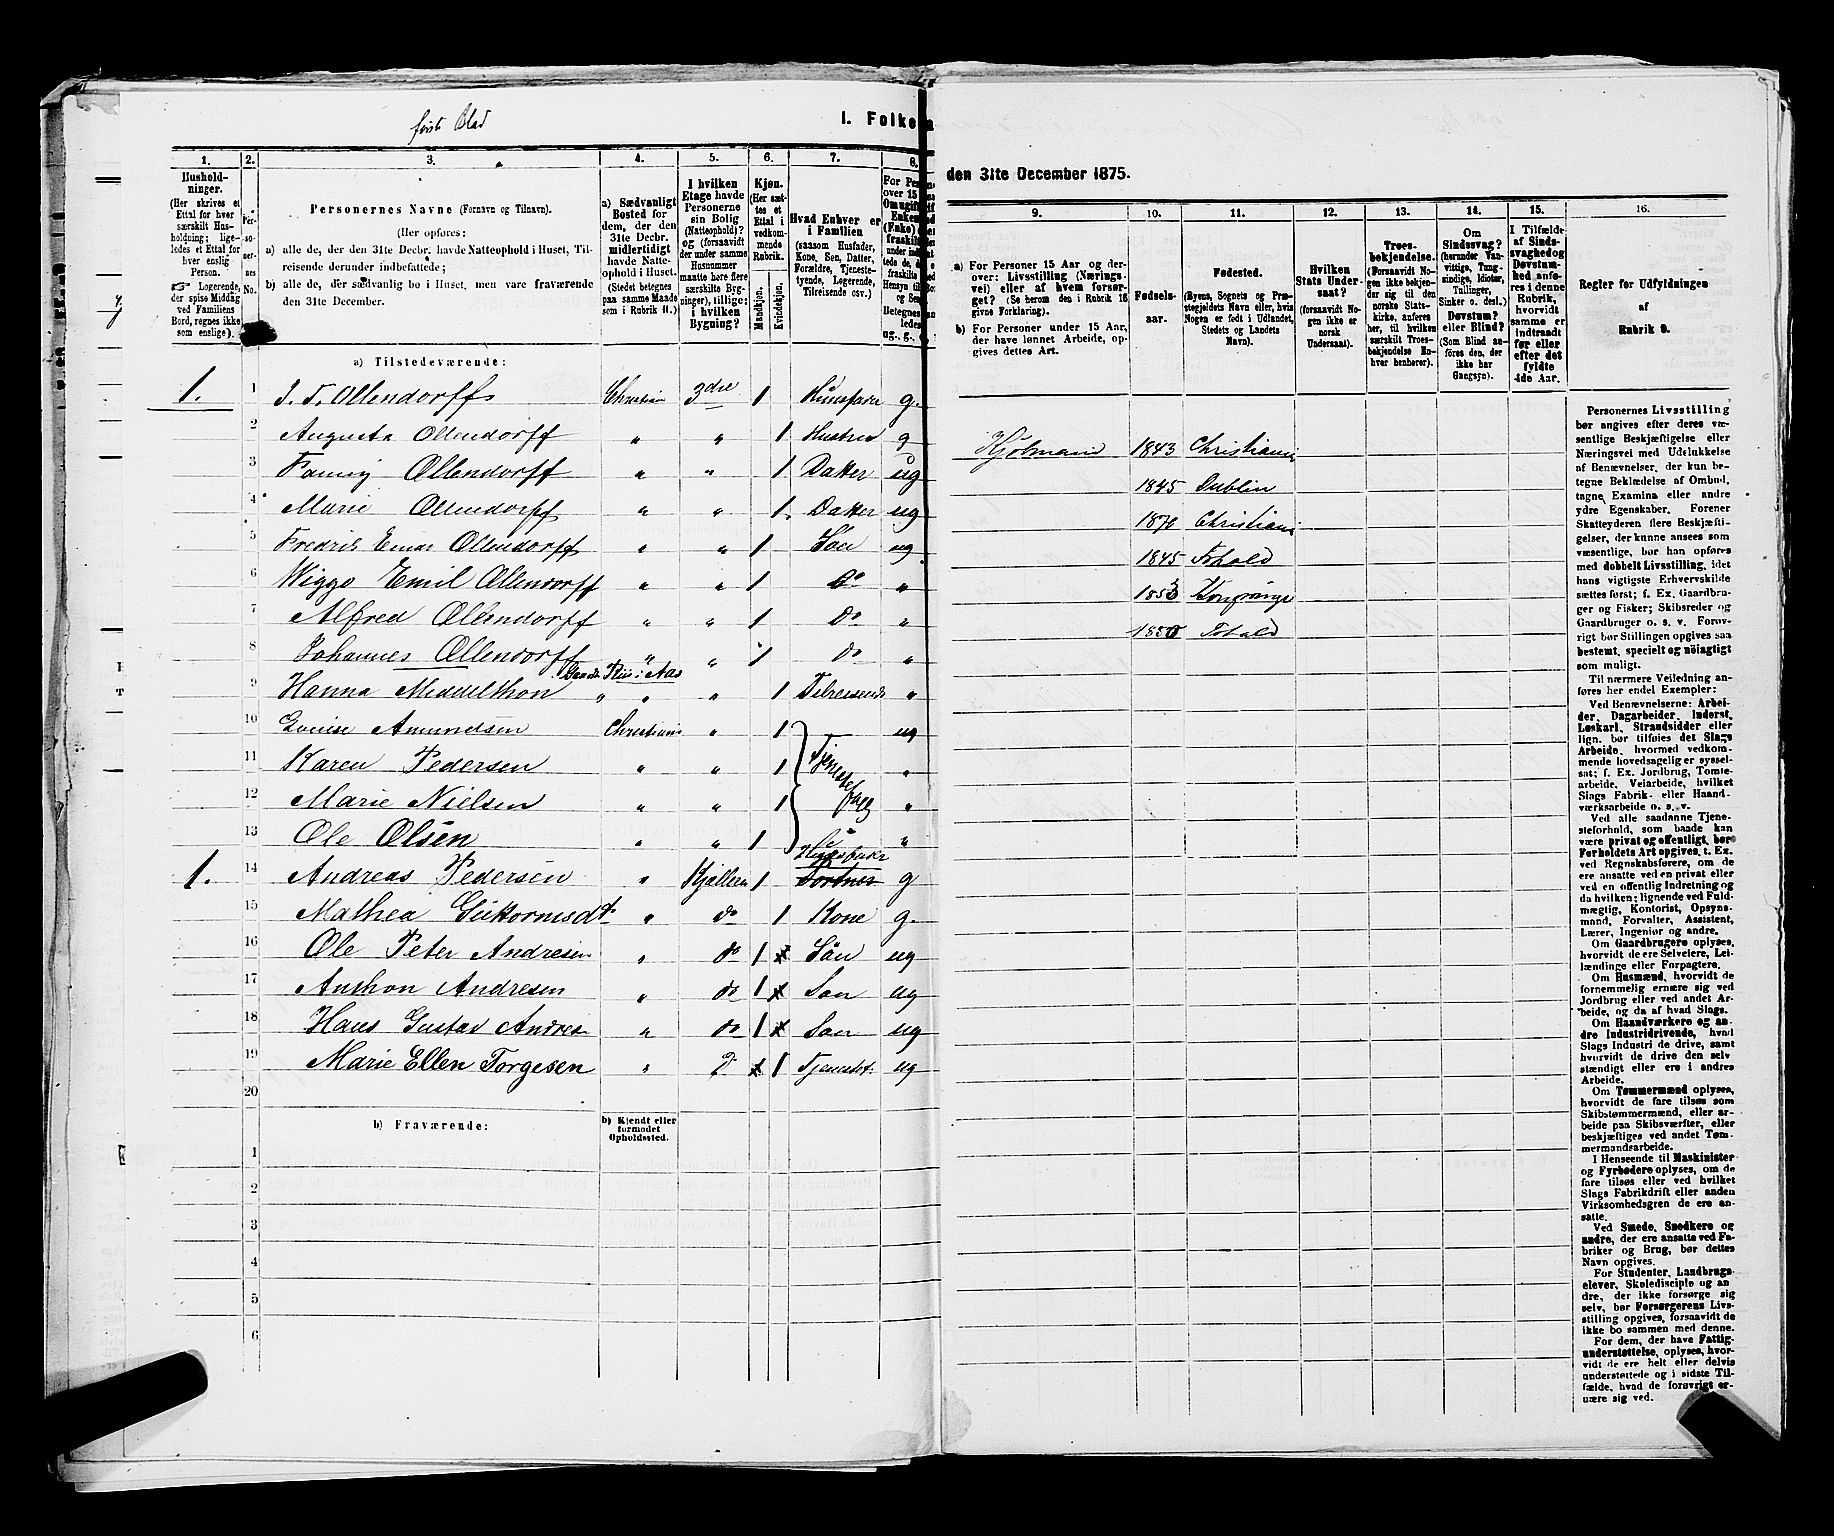 første Blad
I. Folke
den 31te December 1875.
1.
2.
3.
4.
5.
6.
7.
8.
Hushold-
ninger.
(Her skrives et
Ettal for hver
særskilt Hus-
holdning; lige-
ledes et Ettal for
hver enslig
Person.
Logerende,
der spise Middag
ved Familiens
Bord, regnes ikke
som enslige).
Per-
so-
ner-
nes
No.
Personernes Navne (Fornavn og Tilnavn).
(Her opføres:
a) alle de, der den 31te Decbr. havde Natteophold i Huset, Til-
reisende derunder indbefattede;
b) alle de, der sædvanlig bo i Huset, men vare fraværende
den 31te December.
a) Sædvanligt
Bosted for
dem, der den
31te Decbr.
midlertidigt
havde Natte-
ophold i Huset.
(Stedet betegnes
paa samme Maade
som i Rubrik 11.)
I hvilken
Etage havde
Personerne
sin Bolig
(Natteophold)?
og (forsaavidt
der under samme
Husnummer
maatte høre flere
særskilte Byg-
ninger), tillige:
i hvilken
Bygning?
Kjøn.
(Her sæt-
tes et
Ettal i
vedkom-
mende
Rubrik.
Mandkjøn.
Kvindekjøn.
Hvad Enhver er
i Familien
(saasom Husfader,
Kone, Søn, Datter,
Forældre, Tjeneste-
tyende, Logerende,
Tilreisende osv.)
For Pe
over 15
Omugift
Enkem
(Enke) o
fraskilt
under indt
tede de,
fraskilte
Hensyn ti
og Se
Betegnes
ledes
ug., g.,
a) Tilstedeværende:
1. 1 J. F. Ollendorff Christiania 3die 1 Huusfader g.
2 Augusta Ollendorff " " 1 Hustru g
3 Fanny Ollendorff " " 1 Datter ug
4 Marie Ollendorff " " 1. Datter ug
5 Fredrik Einar Ollendorff " " 1 Søn ug
6 Wiggo Emil Ollendorff " " 1 Do "
7 Alfred Ollendorff " " 1 do "
8 Johannes Ollendorff " " 1 do "
i Aas
9 Hanna Middelthon " " " 1 Tilreisende "
10 Louise Amundsen Christiania " 1 ug
11 Karen Pedersen " " 1 Tjenestefolk "
12 Marie Nielsen " " 1 "
13 Ole Olsen " " 1 "
Huusfader
1. 14 Andreas Pedersen " Kjælleren 1 Portner g
15 Mathea Guttormsdt. " do 1 Kone g.
16 Ole Peter Andresen " do 1 Søn ug
17 Anthon Andresen " do 1 Søn ug
18 Hans Gustav Andresen " do 1 Søn ug
19 Marie Ellen Torgesen " D 1 Tjenestet. ug
20
b) Fraværende:
b) Kjendt eller
formodet
Opholdssted.
1
2
3
4
5
6
9.
10.
11.
12.
13.
14.
15.
16.
a) For Personer 15 Aar og der-
over: Livsstilling (Nærings-
vei) eller af hvem forsør-
get? (Se herom den i Rubrik 16
givne Forklaring).
b) For Personer under 15 Aar,
der have lønnet Arbeide, op-
gives dettes Art.
Fødsels-
aar.
Fødested.
(Byens, Sognets og Præ-
stegjeldets Navn eller, hvis
Nogen er født i Udlandet,
Stedets og Landets
Navn).
Hvilken
Stats Under-
saat?
(forsaavidt No-
gen ikke er
norsk
Undersaat).
Troes-
bekjendelse.
(Forsaavidt No-
gen ikke bekjen-
der sig til den
norske Stats-
kirke, anføres
her, til hvilken
særskilt Troes-
bekjendelse En-
hver henhører).
Om
Sindssvag?
(herunder Van-
vittige, Tung-
sindige, Idioter,
Tullinger,
Sinker o. desl.)
Døvstum?
eller Blind?
(Som Blind an-
føres den, der
ikke har
Gangsyn).
I Tilfælde
af Sinds-
svaghed og
Døvstum-
hed anfø-
res i denne
Rubrik,
hvorvidt
samme er
indtraadt
før eller
efter det
fyldte
4de Aar.
Regler for Udfyldningen
af
Rubrik 9.
Kjøbmand 1843 Christiania
1845 Dublin
1870 Christiania
1845
1853
1850
Personernes Livsstilling
bør angives efter deres væ-
sentlige Beskjæftigelse eller
Næringsvei med Udelukkelse
af Benævnelser, der kun be-
tegne Beklædelse af Ombud,
tagne Examina eller andre
ydre Egenskaber. Forener
Skatteyderen flere Beskjæfti-
gelser, der kunne ansees som
væsentlige, bør han opføres
med dobbelt Livsstilling, idet
hans vigtigste Erhvervskilde
sættes først; f. Ex. Gaardbru-
ger og Fisker; Skibsreder og
Gaardbruger o. s. v. Forøv-
rigt bør Stillingen opgives saa
bestemt, specielt og nøiagtigt
som muligt.
Til nærmere Veiledning an-
føres her endel Exempler:
Ved Benævnelserne: Arbei-
der, Dagarbeider, Inderst,
Løskarl, Strandsidder eller
lign. bør tilføies det Slags
Arbeide, hvormed vedkom-
mende hovedsagelig er syssel-
sat; f. Ex. Jordbrug, Tomte-
arbeide, Veiarbeide, hvilket
Slags Fabrik- eller Haand-
værksarbeide o. s. v.
Ved alle saadanne Tjene-
steforhold, som baade kan
være privat og offentligt, bør
Forholdets Art opgives, t. Ex.
ved Regnskabsførere, om de
ere ansatte ved en privat eller
ved en offentlig Indretning og
da hvilken; lignende ved Fuld-
mægtig, Kontorist, Opsyns-
mand, Forvalter, Assistent,
Lærer, Ingeniør og andre.
Om Gaardbrugere oplyses,
hvorvidt de ere Selveiere, Lei-
lændinge eller Forpagtere.
Om Husmænd, hvorvidt de
fornemmelig ernære sig ved
Jordbrug eller ved andet Ar-
beide, og da af hvad Slags.
Om Haandværkere og an-
dre Industridrivende, hvad
Slags Industri de drive, samt
hvorvidt de drive den selv-
stændigt eller ere i andres
Arbeide.
Om Tømmermænd oplyses,
hvorvidt de fare tilsøs som
Skibstømmermænd, eller ar-
beide paa Skibsværfter, eller
beskjæftiges ved andet Tøm-
mermandsarbeide.
I Henseende til Maskinister
og Fyrbødere oplyses, om de
fare tilsøs eller ved hvilket
Slags Fabrikdrift eller anden
Virksomhedsgren de ere an-
satte.
Ved Smede, Snedkere og
andre, der ere ansatte ved Fa-
briker og Brug, bør dettes
Navn opgives.
For Studenter, Landbrugs-
elever, Skoledisciple og an-
dre, der ikke forsørge sig
selv, bør Forsørgerens Livs-
stilling opgives, forsaavidt de
ikke bo sammen med denne.
For dem, der have Fattig-
understøttelse, oplyses, hvor-
vidt de ere helt eller delvis
understøttede og i sidste Til-
fælde, hvad de forøvrigt er-
nære sig ved.